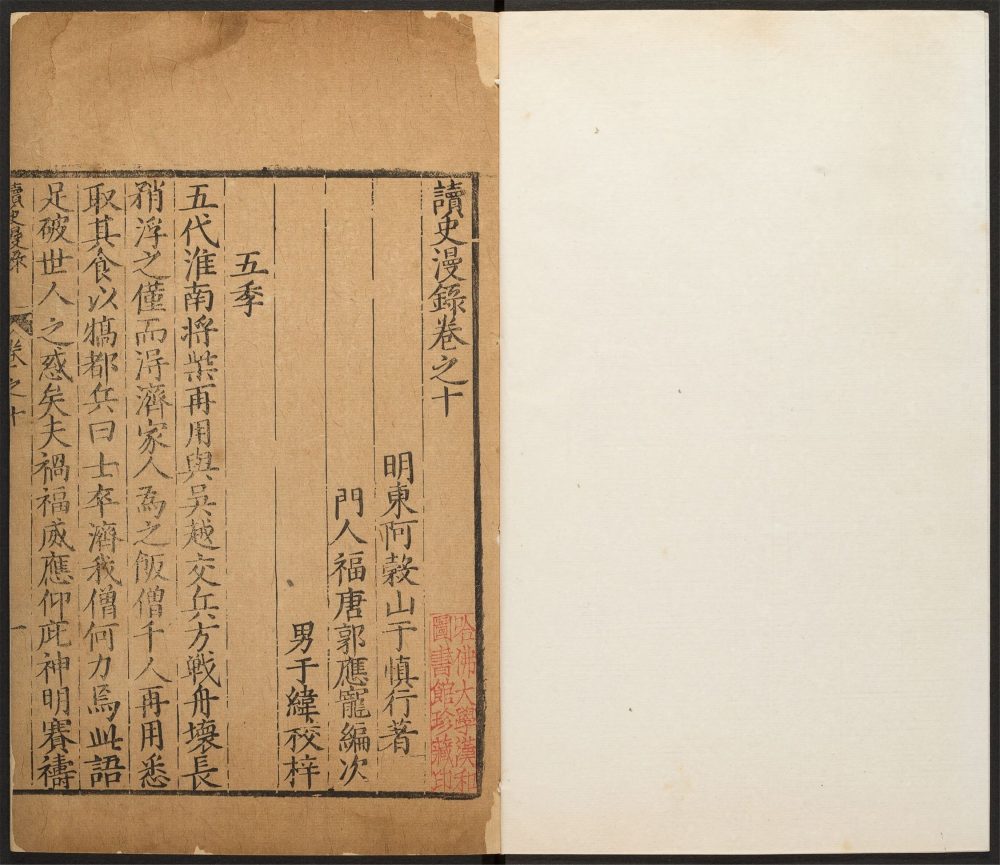 讀史漫錄卷之十
明東阿穀山于慎行著
門人福唐郭應寵編次
男于緯校梓
五季
五代淮南將柴再用與吳越交兵方戰舟壞長
矟浮之僅而得濟家人為之飯僧千人再用悉
取其食以犒都兵曰士卒濟我僧何力焉此語
足破世人之惑矣夫禍福感應仰庇神明賽禱
讀史漫錄 卷之十 一
哈佛大學漢和
圖書館珍藏印